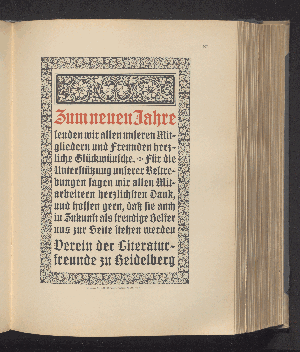 Zum neuen Jahre
senden wir allen unseren Mit-
gliedern und Freunden herz-
liche Glückwünsche. Für die
Unterstützung unserer Bestre-
bungen sagen wir allen Mit-
arbeitern herzlichsten Dank,
und hoffen gern, daß sie auch
in Zukunft als freudige Helfer
uns zur Seite stehen werden
Verein der Literatur-
freunde zu Heidelberg